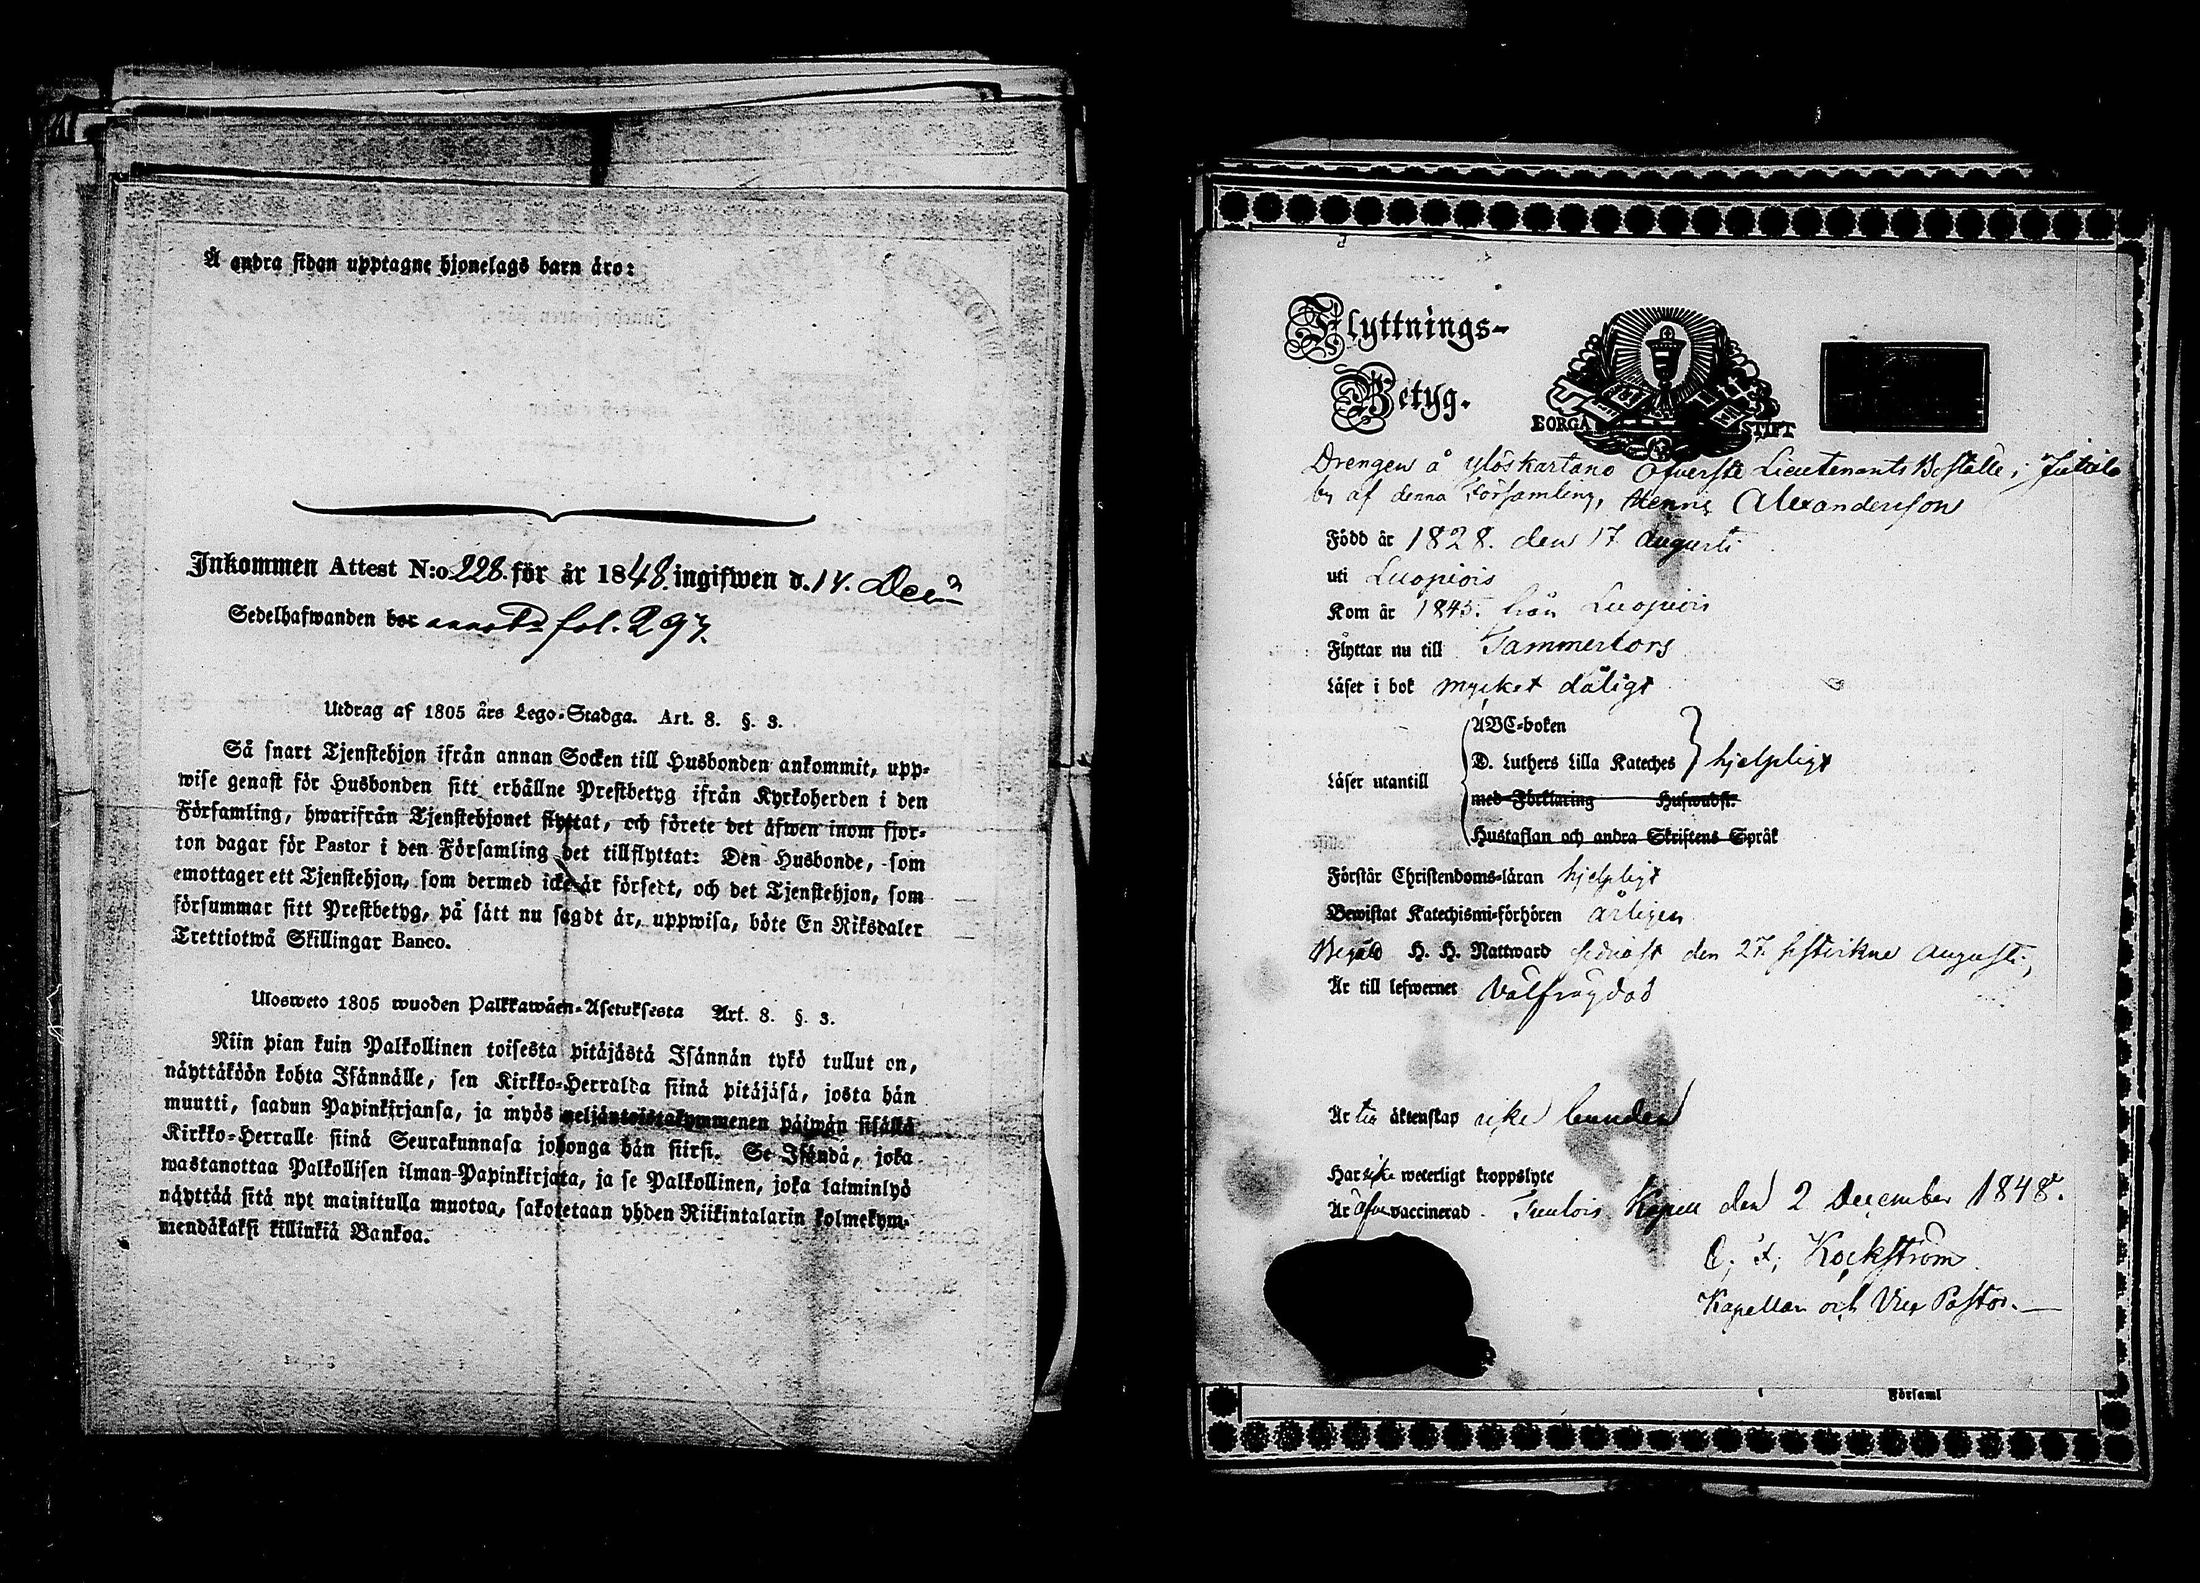 Å andra sidan upptagne hjonelags barn äro:
Inkommen Attest N:o 228. för år 1848. ingifwen d. 14. Dec.
Sedelhafwanden bor fol. 297.
Utdrag af 1805 års Lego-Stadga. Art. 8. §. 3.
Så snart Tjenstehjon ifrån annan Socken till Husbonden ankommit, upp-
wise genast för Husbonden sitt erhållne Prestbetyg ifrån Kyrkoherden i den
Församling, hwarifrån Tjenstehjonet flyttat, och förete det äfwen inom fjor-
ton dagar för Pastor i den Församling det tillflyttat: Den Husbonde, som
emottager ett Tjenstehjon, som dermed icke är försedt, och det Tjenstehjon, som
försummar sitt Prestbetyg, på sätt nu sagdt är, uppwisa, böte En Riksdaler
Trettiotwå Skillingar Banco.
Ulosweto 1805 wuoden Palkkawäen-Asetuksesta Art. 8. §. 3.
Niin pian kuin Palkollinen toisesta pitäjästä Isännän tykö tullut on,
näyttäköön kohta Isännälle, sen Kirkko-Herralda siinä pitäjäsä, josta hän
muutti, saadun Papinkirjansa, ja myös neljäntoistakymmenen päiwän sisällä
Kirkko-Herralle siinä Seurakunnasa johonga hän siirsi. Se Isändä, joka
wastanottaa Palkollisen ilman-Papinkirjata, ja se Palkollinen, joka laiminlyö
näyttää sitä nyt mainitulla muotoa, sakotetaan yhden Riikintalarin kolmekym-
mendäkaksi killinkiä Bankoa.
Flyttnings-
Betyg.
BORGÅ STIFT
Drengen å Ylöskartano Öfverste Lieutenants Boställe i Jutila
by af denna Församling, Henric Alexandersson
Född år 1828. den 17 Augusti
uti Luopiois
Kom år 1845. från Luopiois
Flyttar nu till Tammerfors
Läser i bok mycket dåligt
ABC-boken
D. Luthers Lilla Kateches hjelpligt
Läser utantill
med Förklaring Huswudst.
Hustaflan och andra Skriftens Språk
Förstår Christendoms-läran hjelpligt
Bewistat Katechismi-förhören årligen
Begått H. H. Nattward sednast den 27 sistvikne Augusti,
Är till lefwernet Välfräjdad
Är till äktenskap icke bunden
Har icke weterligt kroppslyte
Är äfven vaccinerad. Tuulois Kapell den 2 December 1848.
Kockström
Kapellan och Vice Pastor.
Församl